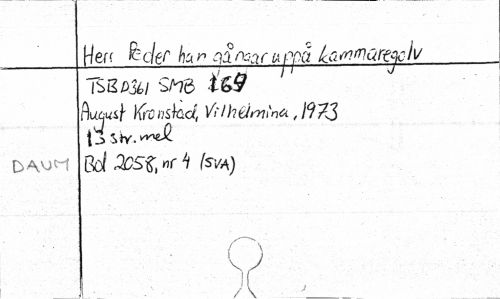 Herr Peder han gångar uppå kammaregolv
TSB D361 SMB 169
August Kronstad, Vilhelmina, 1973
13 str. mel
DAUM Bd 2058, nr 4 (SVA)